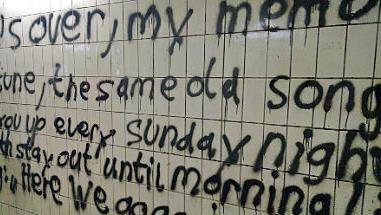 's over, my memo
tune, the same old song
you up every sunday night
stay out until morning!
Here we go